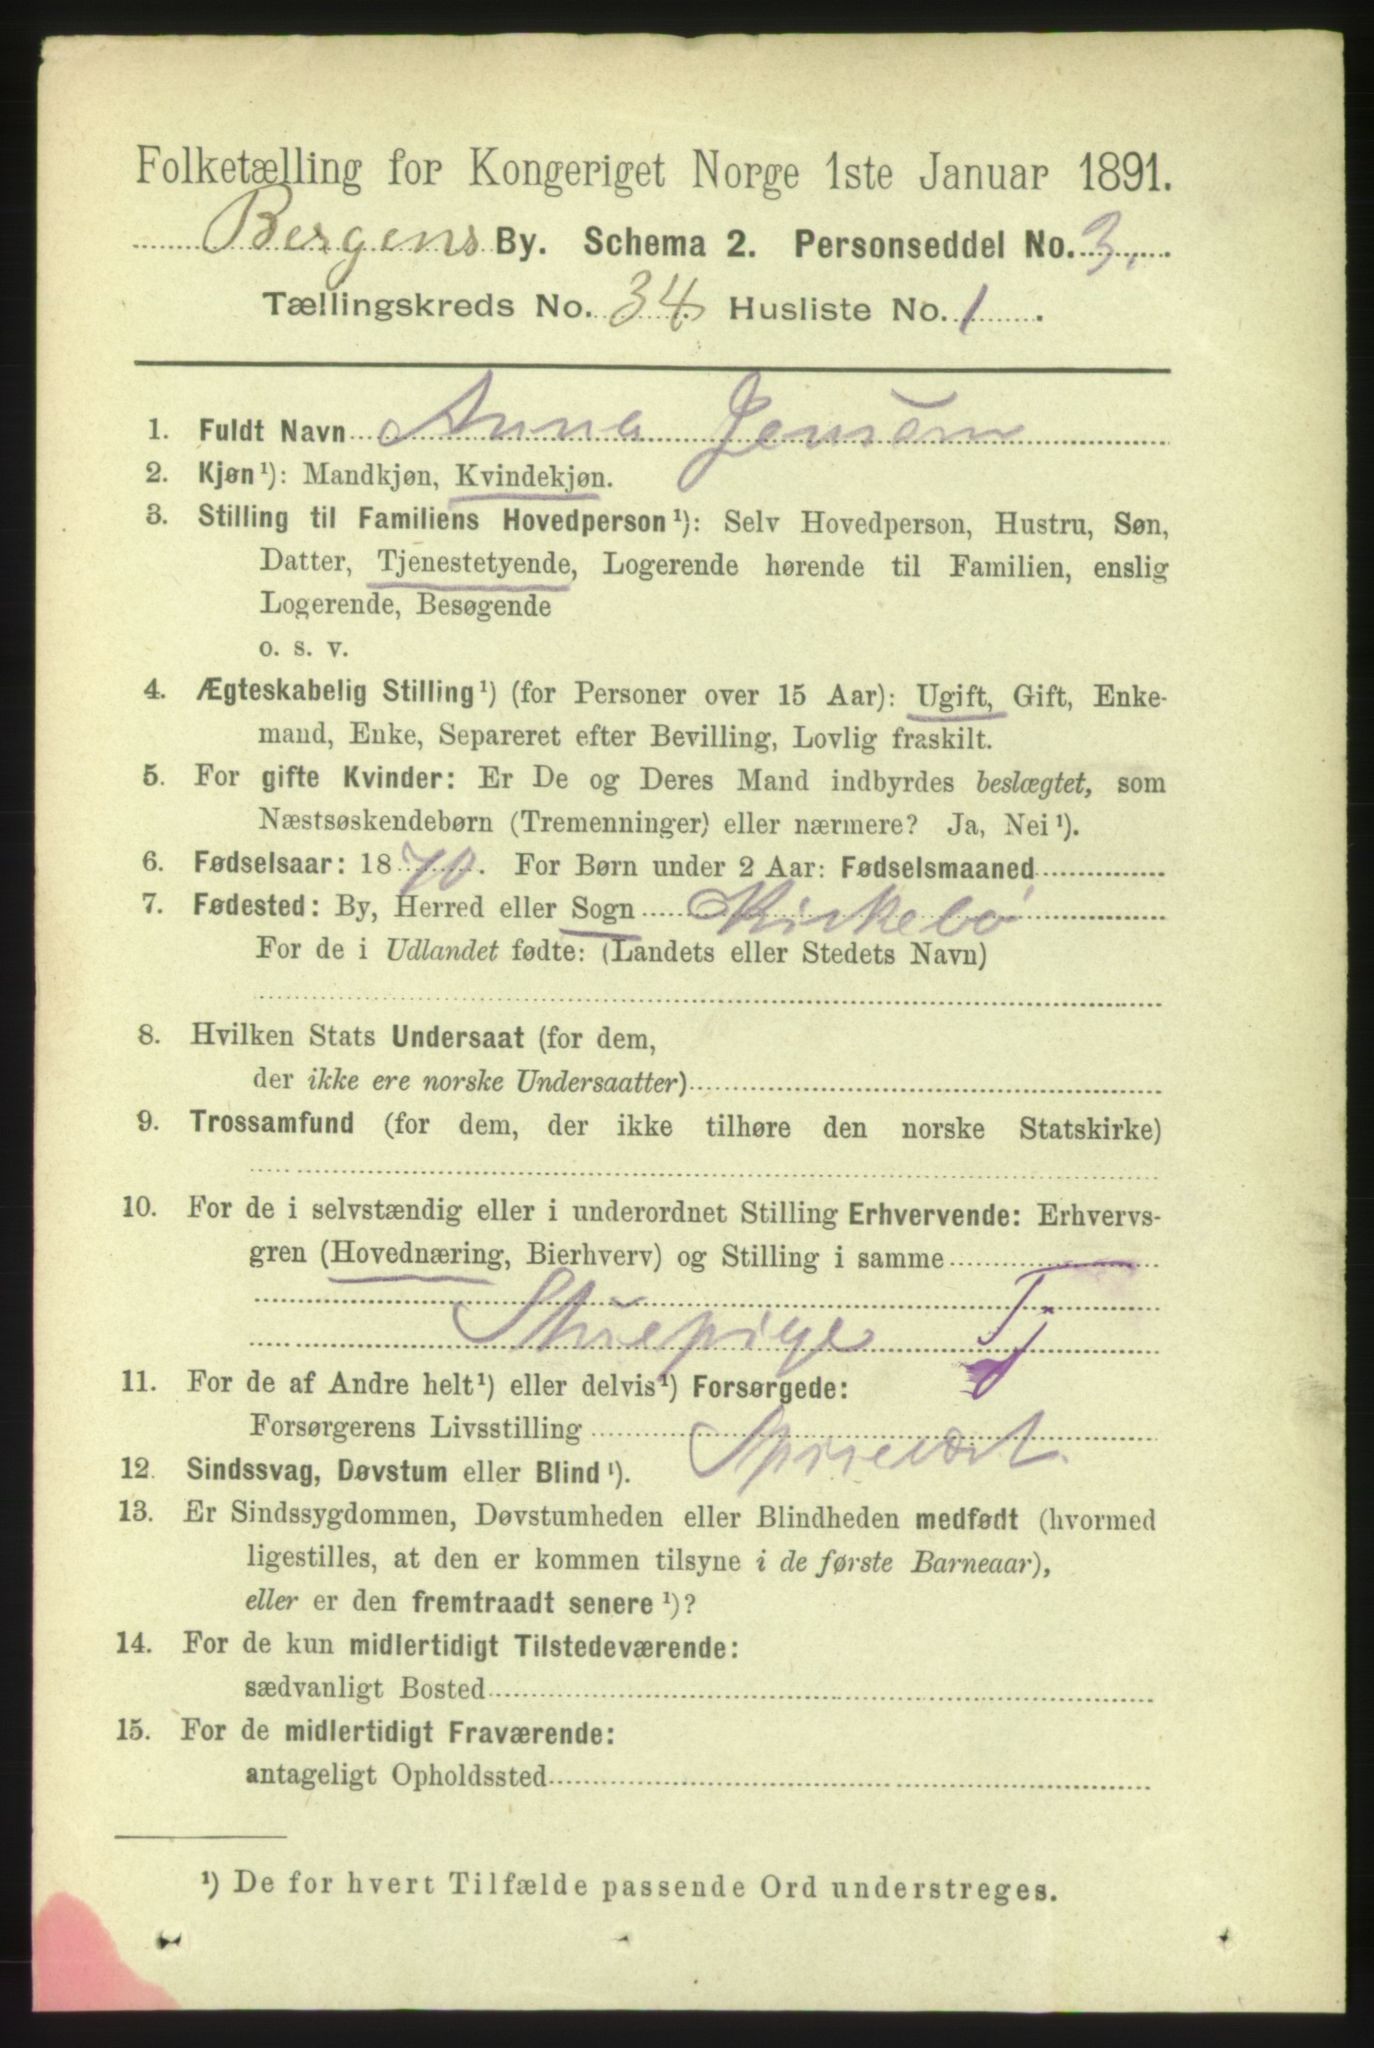 Folketælling for Kongeriget Norge 1ste Januar 1891.
Bergens By. Schema 2. Personseddel No. 3.
Tællingskreds No. 34 Husliste No. 1.
1. Fuldt Navn Anna Jensen
2. Kjøn¹): Mandkjøn, Kvindekjøn.
3. Stilling til Familiens Hovedperson¹): Selv Hovedperson, Hustru, Søn,
Datter, Tjenestetyende, Logerende hørende til Familien, enslig
Logerende, Besøgende
o. s. v.
4. Ægteskabelig Stilling¹) (for Personer over 15 Aar): Ugift, Gift, Enke-
mand, Enke, Separeret efter Bevilling, Lovlig fraskilt.
5. For gifte Kvinder: Er De og Deres Mand indbyrdes beslægtet, som
Næstsøskendebørn (Tremenninger) eller nærmere? Ja, Nei¹).
6. Fødselsaar: 1870. For Børn under 2 Aar: Fødselsmaaned
7. Fødested: By, Herred eller Sogn Kirkebø
For de i Udlandet fødte: (Landets eller Stedets Navn)
8. Hvilken Stats Undersaat (for dem,
der ikke ere norske Undersaatter)
9. Trossamfund (for dem, der ikke tilhøre den norske Statskirke)
10. For de i selvstændig eller i underordnet Stilling Erhvervende: Erhvervs-
gren (Hovednæring, Bierhverv) og Stilling i samme
Stuepige T
11. For de af Andre helt¹) eller delvis¹) Forsørgede:
Forsørgerens Livsstilling Spisevært
12. Sindssvag, Døvstum eller Blind¹).
13. Er Sindssygdommen, Døvstumheden eller Blindheden medfødt (hvormed
ligestilles, at den er kommen tilsyne i de første Barneaar),
eller er den fremtraadt senere¹)?
14. For de kun midlertidigt Tilstedeværende:
sædvanligt Bosted
15. For de midlertidigt Fraværende:
antageligt Opholdssted
¹) De for hvert Tilfælde passende Ord understreges.